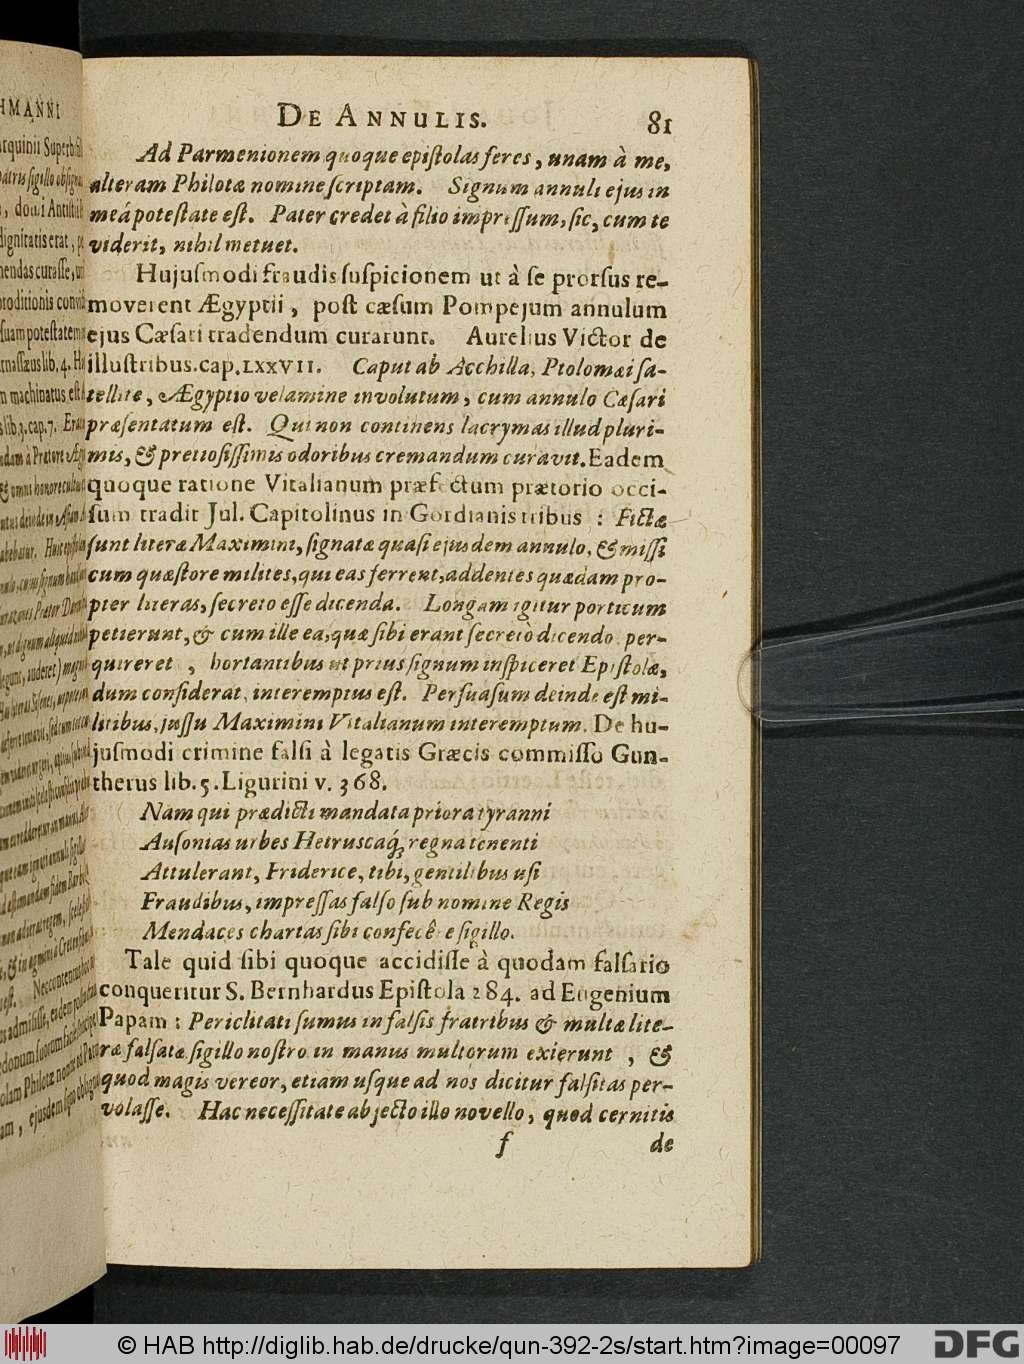 DE ANNULIS. 81
Ad Parmenionem quoque epiſtolas feres, unam à me,
alteram Philotæ nomine ſcriptam. Signum annuli ejus in
meâ poteſtate eſt. Pater credet à filio impreſſum, ſic, cum te
viderit, nihil metuet.
Hujuſmodi fraudis ſuſpicionem ut à ſe prorſus re-
moverent Ægyptii, poſt cæſum Pompejum annulum
ejus Cæſari tradendum curarunt. Aurelius Victor de
illuſtribus. cap. LXXVII. Caput ab Acchilla, Ptolomæi ſa-
tellite, Ægyptio velamine involutum, cum annulo Cæſari
præſentatum eſt. Qui non continens lacrymas illud pluri-
mis, & pretioſiſſimis odoribus cremandum curavit. Eadem
quoque ratione Vitalianum præfectum prætorio occi-
ſum tradit Jul. Capitolinus in Gordianis tribus : Fictæ
ſunt literæ Maximini, ſignatæ quaſi ejusdem annulo, & miſſi
cum quæſtore milites, qui eas ferrent, addentes quædam pro-
pter literas, ſecreto eſſe dicenda. Longam igitur porticum
petierunt, & cum ille ea, quæ ſibi erant ſecretò dicendo, per-
quireret , hortantibus ut prius ſignum inſpiceret Epiſtolæ,
dum conſiderat, interemptus eſt. Perſuaſum deinde eſt mi-
litibus, juſſu Maximini Vitalianum interemptum. De hu-
juſmodi crimine falſi à legatis Græcis commiſſo Gun-
therus lib. 5. Ligurini v. 368.
Nam qui prædicti mandata priora tyranni
Auſonias urbes Hetruscaq́; regna tenenti
Attulerant, Friderice, tibi, gentilibus uſi
Fraudibus, impreſſas falſo ſub nomine Regis
Mendaces chartas ſibi confecêre ſigillo.
Tale quid ſibi quoque accidiſſe à quodam falſario
conqueritur S. Bernhardus Epiſtola 284. ad Eugenium
Papam : Periclitati ſumus in falſis fratribus & multæ lite-
ræ falſatæ ſigillo noſtro in manus multorum exierunt , &
quod magis vereor, etiam uſque ad nos dicitur falſitas per-
volaſſe. Hac neceſſitate abjecto illo novello, quod cernitis
f de
© HAB http://diglib.hab.de/drucke/qun-392-2s/start.htm?image=00097
DFG